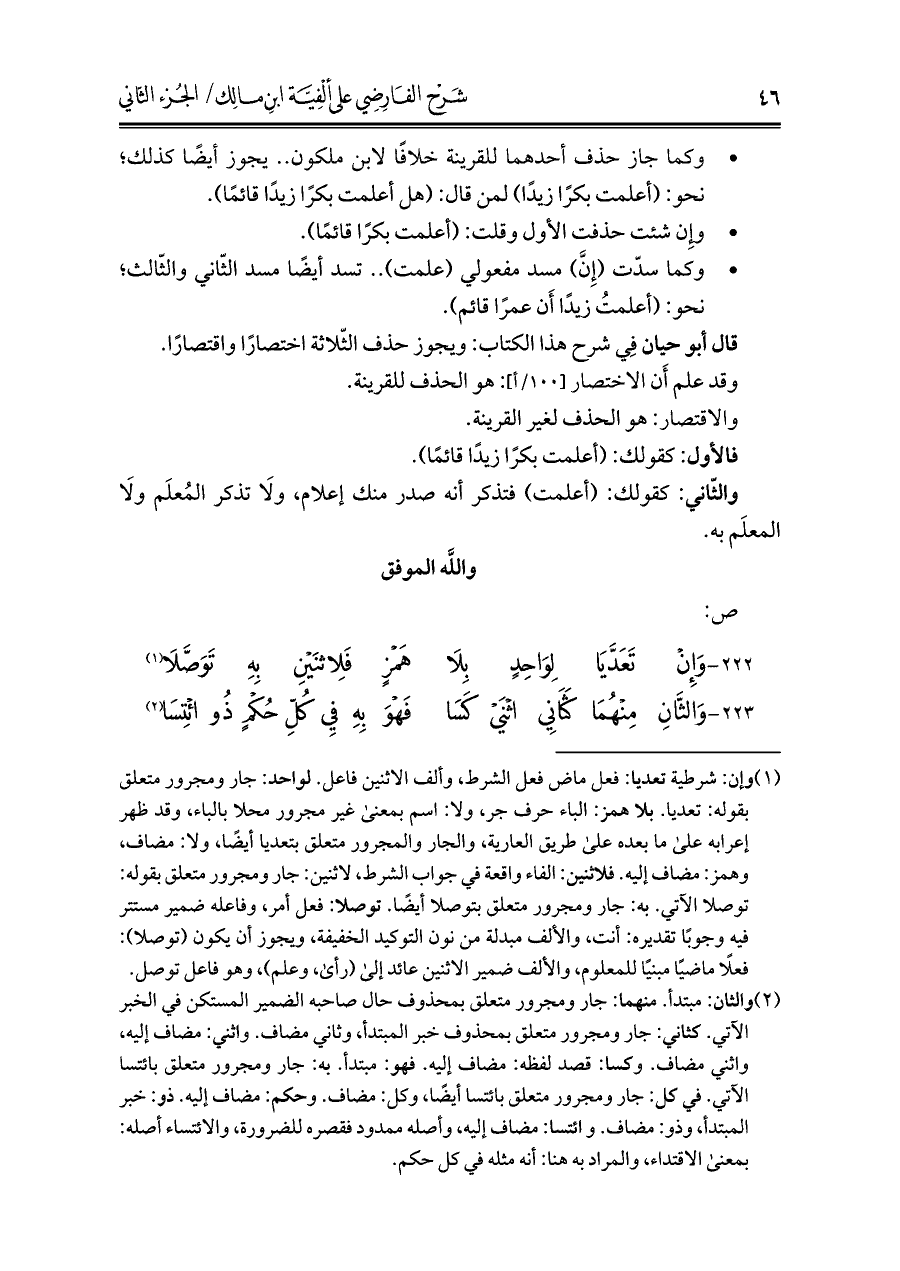 ٤٦ شرح الفارضي على ألفية ابن مالك/ الجزء الثاني
• وكما جاز حذف أحدهما للقرينة خلافًا لابن ملكون.. يجوز أيضًا كذلك؛
نحو: (أعلمت بكرًا زيدًا) لمن قال: (هل أعلمت بكرًا زيدًا قائمًا).
• وإن شئت حذفت الأول وقلت: (أعلمت بكرًا قائمًا).
• وكما سدّت (إنَّ) مسد مفعولي (علمت).. تسد أيضًا مسد الثّاني والثّالث؛
نحو: (أعلمتُ زيدًا أَن عمرًا قائم).
قال أبو حيان فِي شرح هذا الكتاب: ويجوز حذف الثّلاثة اختصارًا واقتصارًا.
وقد علم أَن الاختصار [١٠٠/أ]: هو الحذف للقرينة.
والاقتصار: هو الحذف لغير القرينة.
فالأول: كقولك: (أعلمت بكرًا زيدًا قائمًا).
والثّاني: كقولك: (أعلمت) فتذكر أنه صدر منك إعلام، ولَا تذكر المُعلَم ولَا
المعلَم به.
واللَّه الموفق
ص:
٢٢٢-وَإِنْ تَعَدَّيَا لِوَاحِدٍ بِلَا هَمْزٍ فَلِاثنَيْنِ بِهِ تَوَصَّلَا(١)
٢٢٣-وَالثَّانِ مِنْهُمَا كَثَانِي اثْنَيْ كَسَا فَهْوَ بِهِ فِي كُلِّ حُكْمٍ ذُو ائْتِسَا(٢)
(١)وإن: شرطية تعديا: فعل ماض فعل الشرط، وألف الاثنين فاعل. لواحد: جار ومجرور متعلق
بقوله: تعديا. بلا همز: الباء حرف جر، ولا: اسم بمعنىٰ غير مجرور محلا بالباء، وقد ظهر
إعرابه علىٰ ما بعده علىٰ طريق العارية، والجار والمجرور متعلق بتعديا أيضًا، ولا: مضاف،
وهمز: مضاف إليه. فلاثنين: الفاء واقعة في جواب الشرط، لاثنين: جار ومجرور متعلق بقوله:
توصلا الآتي. به: جار ومجرور متعلق بتوصلا أيضًا. توصلا: فعل أمر، وفاعله ضمير مستتر
فيه وجوبًا تقديره: أنت، والألف مبدلة من نون التوكيد الخفيفة، ويجوز أن يكون (توصلا):
فعلًا ماضيًا مبنيًا للمعلوم، والألف ضمير الاثنين عائد إلىٰ (رأىٰ، وعلم)، وهو فاعل توصل.
(٢)والثان: مبتدأ. منهما: جار ومجرور متعلق بمحذوف حال صاحبه الضمير المستكن في الخبر
الآتي. كثاني: جار ومجرور متعلق بمحذوف خبر المبتدأ، وثاني مضاف. واثني: مضاف إليه،
واثني مضاف. وكسا: قصد لفظه: مضاف إليه. فهو: مبتدأ. به: جار ومجرور متعلق بائتسا
الآتي. في كل: جار ومجرور متعلق بائتسا أيضًا، وكل: مضاف. وحكم: مضاف إليه. ذو: خبر
المبتدأ، وذو: مضاف. و ائتسا: مضاف إليه، وأصله ممدود فقصره للضرورة، والائتساء أصله:
بمعنىٰ الاقتداء، والمراد به هنا: أنه مثله في كل حكم.